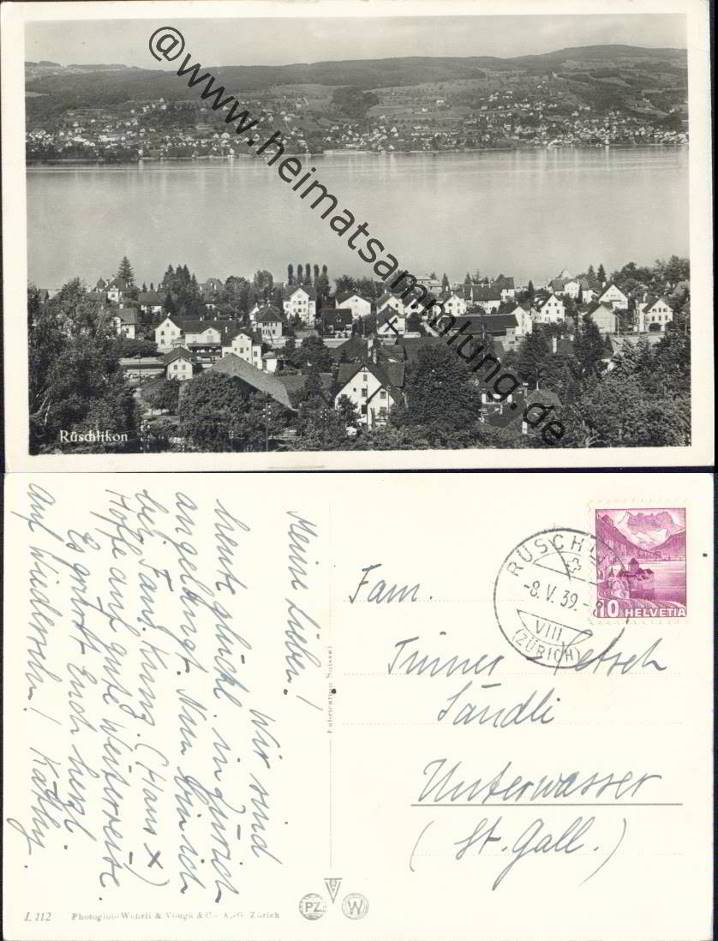 @www.heimatsammlung.de
Rüschlikon
Meine Lieben!
Wir sind
heute glückl. in Zürich
angelangt. Nun bin ich
bei Fam. Kunz. (Haus X)
Hoffe auf gute Weiterreise.
Es grüsst Euch herzl
auf Wiedersehn! Käthy.
Fabrication Suisse
RÜSCHLI
-8.V.39.-8
VIII
(ZÜRICH)
10 HELVETIA
Fam.
Tsch
Sändli
Unterwasser
(St. Gall.)
I. 112 Photoglob-Wehrli & Vouga & Co. A.-G. Zürich
PZ W